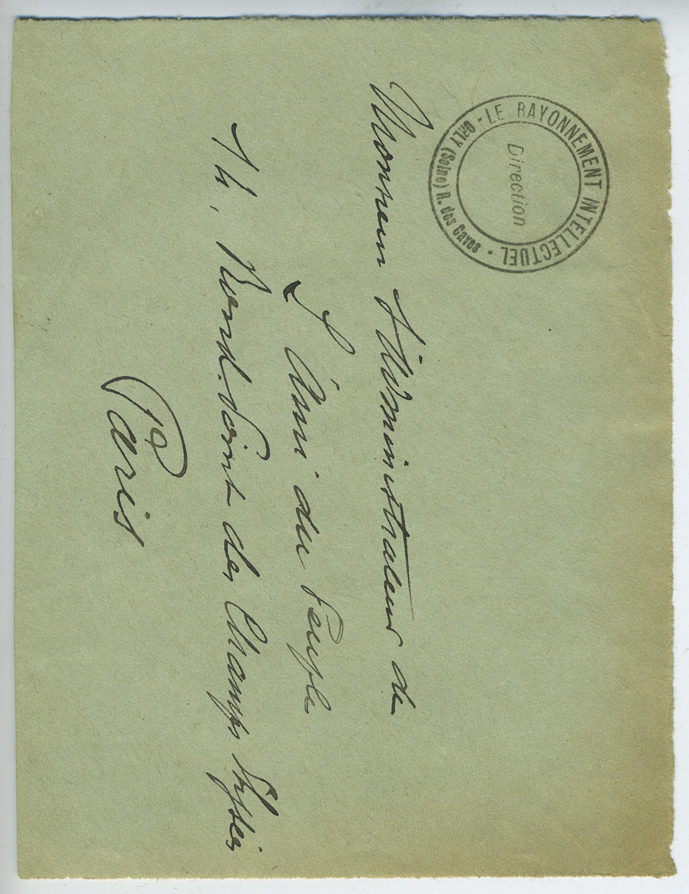 LE RAYONNEMENT INTELLECTUEL
ORLY (Seine) R. des Caves
Direction
Monsieur l'Administrateur de
L'Ami du Peuple
Rond.Point des Champs Elysées
Paris